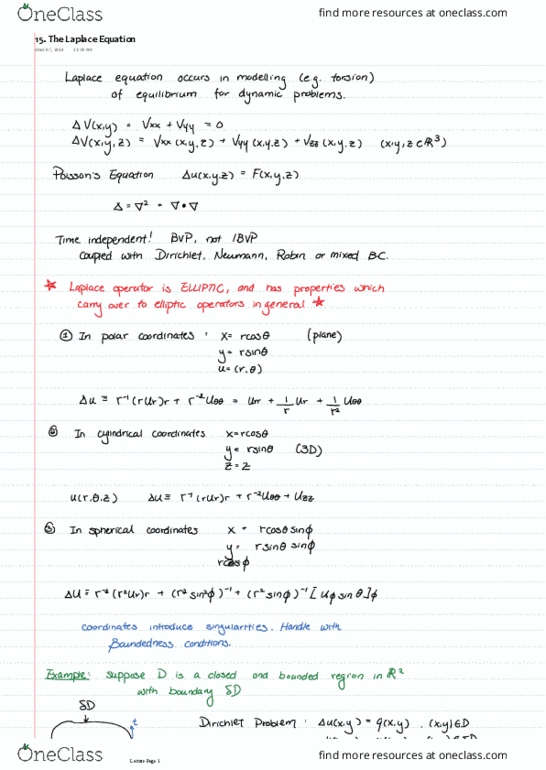 OneClass find more resources at oneclass.com
15. The Laplace Equation
Laplace equation occurs in modelling (e.g. torsion)
of equilibrium for dynamic problems.
ΔV(x,y) = Vxx + Vyy = 0
ΔV(x,y,z) = Vxx (x,y,z) + Vyy (x,y,z) + Vzz (x,y,z) (x,y,z ∈ ℝ³)
Poisson's Equation Δu(x,y,z) = F(x,y,z)
Δ = ∇² = ∇•∇
Time independent! BVP, not IBVP
coupled with Dirichlet, Neumann, Robin or mixed BC.
★ Laplace operator is ELLIPTIC, and has properties which
carry over to elliptic operators in general ★
① In polar coordinates : x= rcosθ (plane)
y= rsinθ
u=(r,θ)
Δu ≡ r⁻¹(rUr)r + r⁻²Uθθ = Urr + 1/r Ur + 1/r² Uθθ
② In cylindrical coordinates x=rcosθ
y= rsinθ (3D)
z=z
u(r,θ,z) Δu≡ r⁻¹(rUr)r + r⁻²Uθθ + Uzz
③ In spherical coordinates x = rcosθsinφ
y= rsinθ sinφ
rcosφ
Δu ≡ r⁻²(r²Ur)r + (r² sin²φ)⁻¹ + (r² sinφ)⁻¹ [Uφ sinθ]φ
coordinates introduce singularities. Handle with
Boundedness conditions.
Example: suppose D is a closed and bounded region in ℝ²
with boundary δD
δD
Dirichlet Problem : Δu(x,y) = q(x,y) , (x,y)∈D
OneClass Lecture Page 1 find more resources at oneclass.com